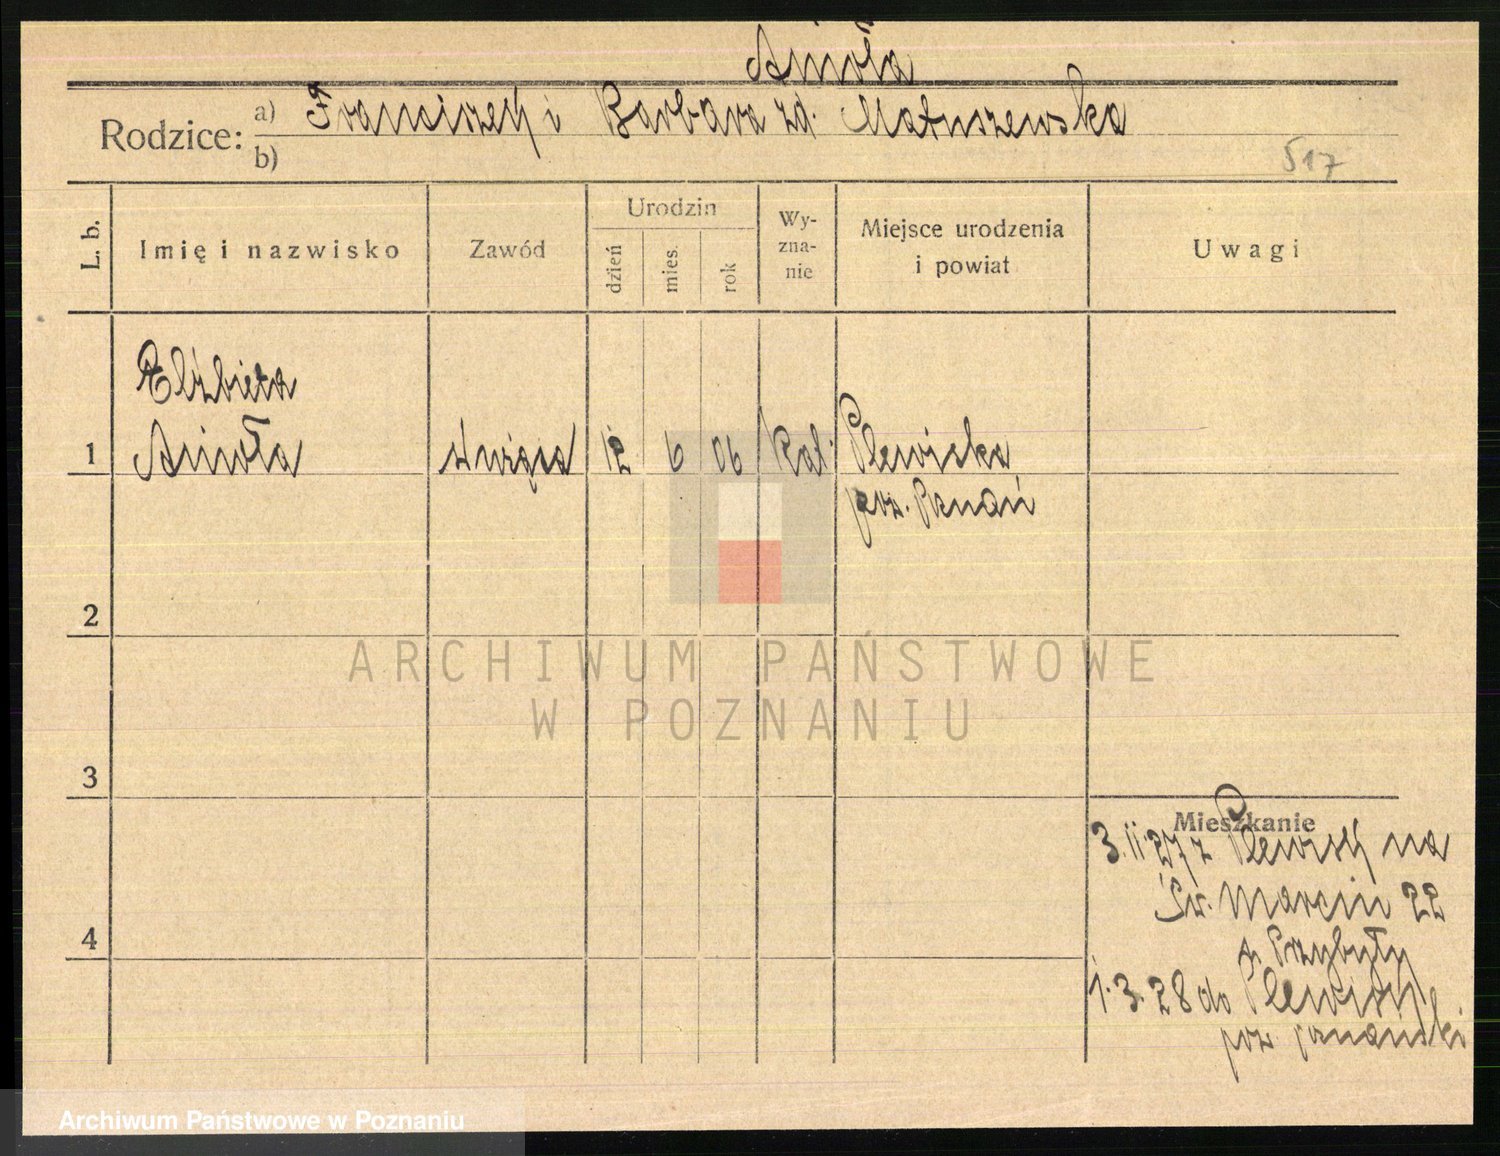 Anioła
Rodzice: a) Franciszek i Barbara zd. Matuszewska
b)
517
L. b. Imię i nazwisko Zawód Urodzin dzień mies. rok Wy-zna-nie Miejsce urodzenia i powiat Uwagi
Elżbieta
1 Anioła służąca 12 6 06 kat. Plewiska
pow. Poznań
2
ARCHIWUM PAŃSTWOWE
W POZNANIU
3
Mieszkanie
3.11.27 z Plewisk na
Św. Marcin 22
Przybyły
4
1.3.28 do Plewisk
pow. poznański
Archiwum Państwowe w Poznaniu